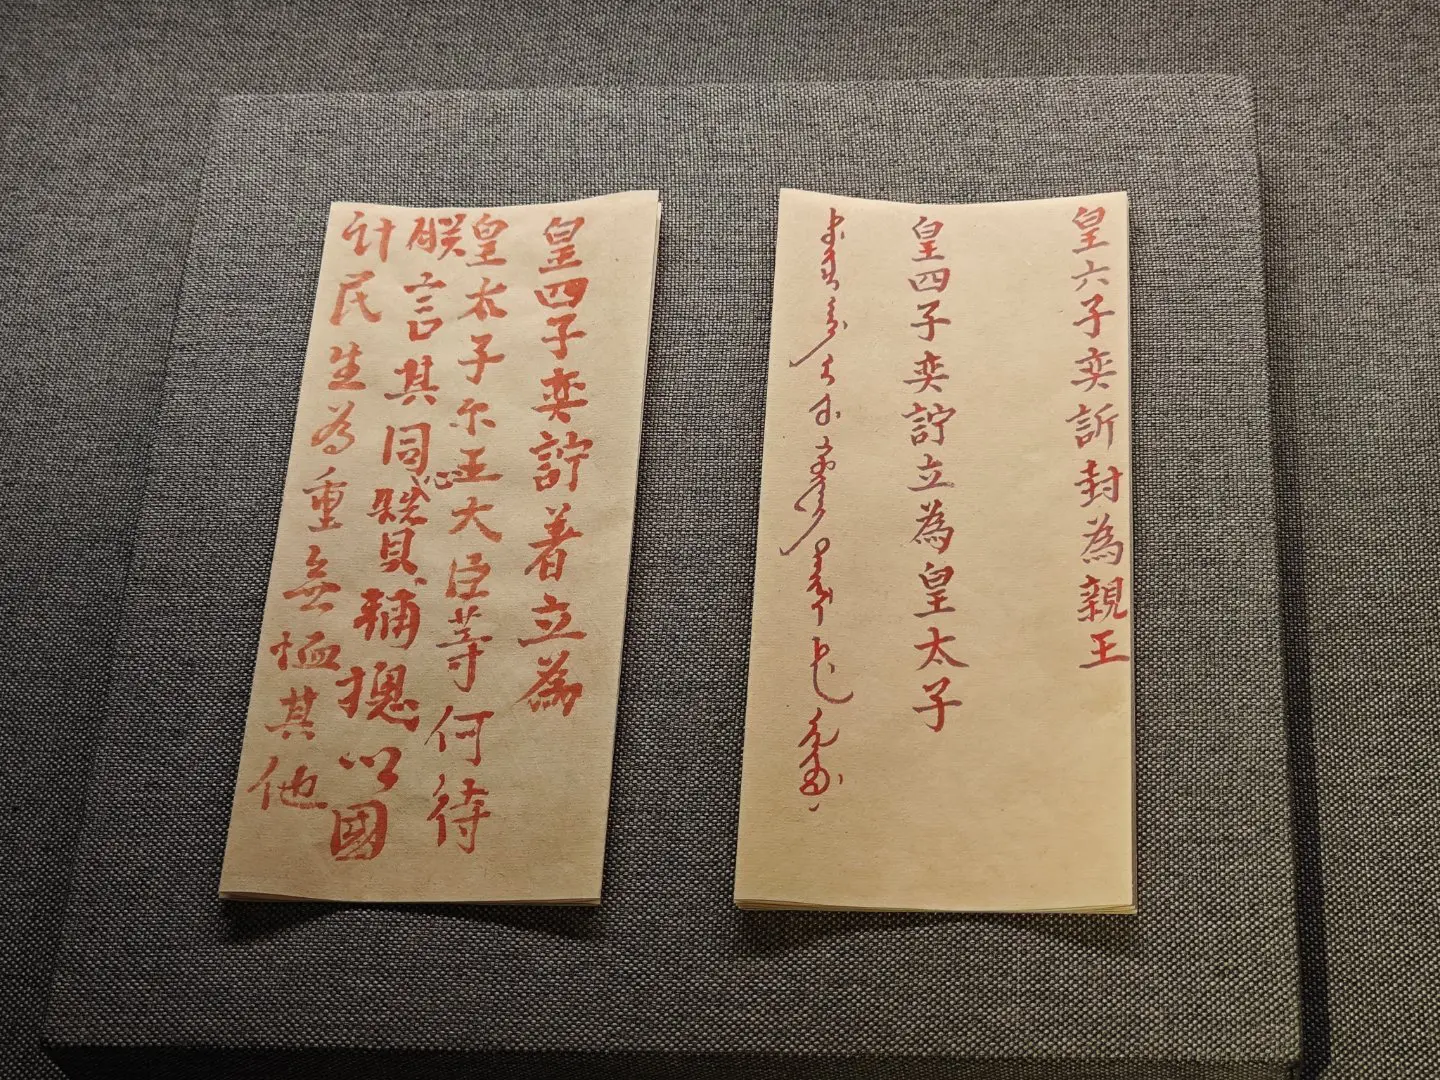 皇六子奕訢封為親王
皇四子奕詝立為皇太子
皇四子奕詝着立為
皇太子尔王大臣等何待
朕言其同心賛輔摠以國
計民生為重無恤其他